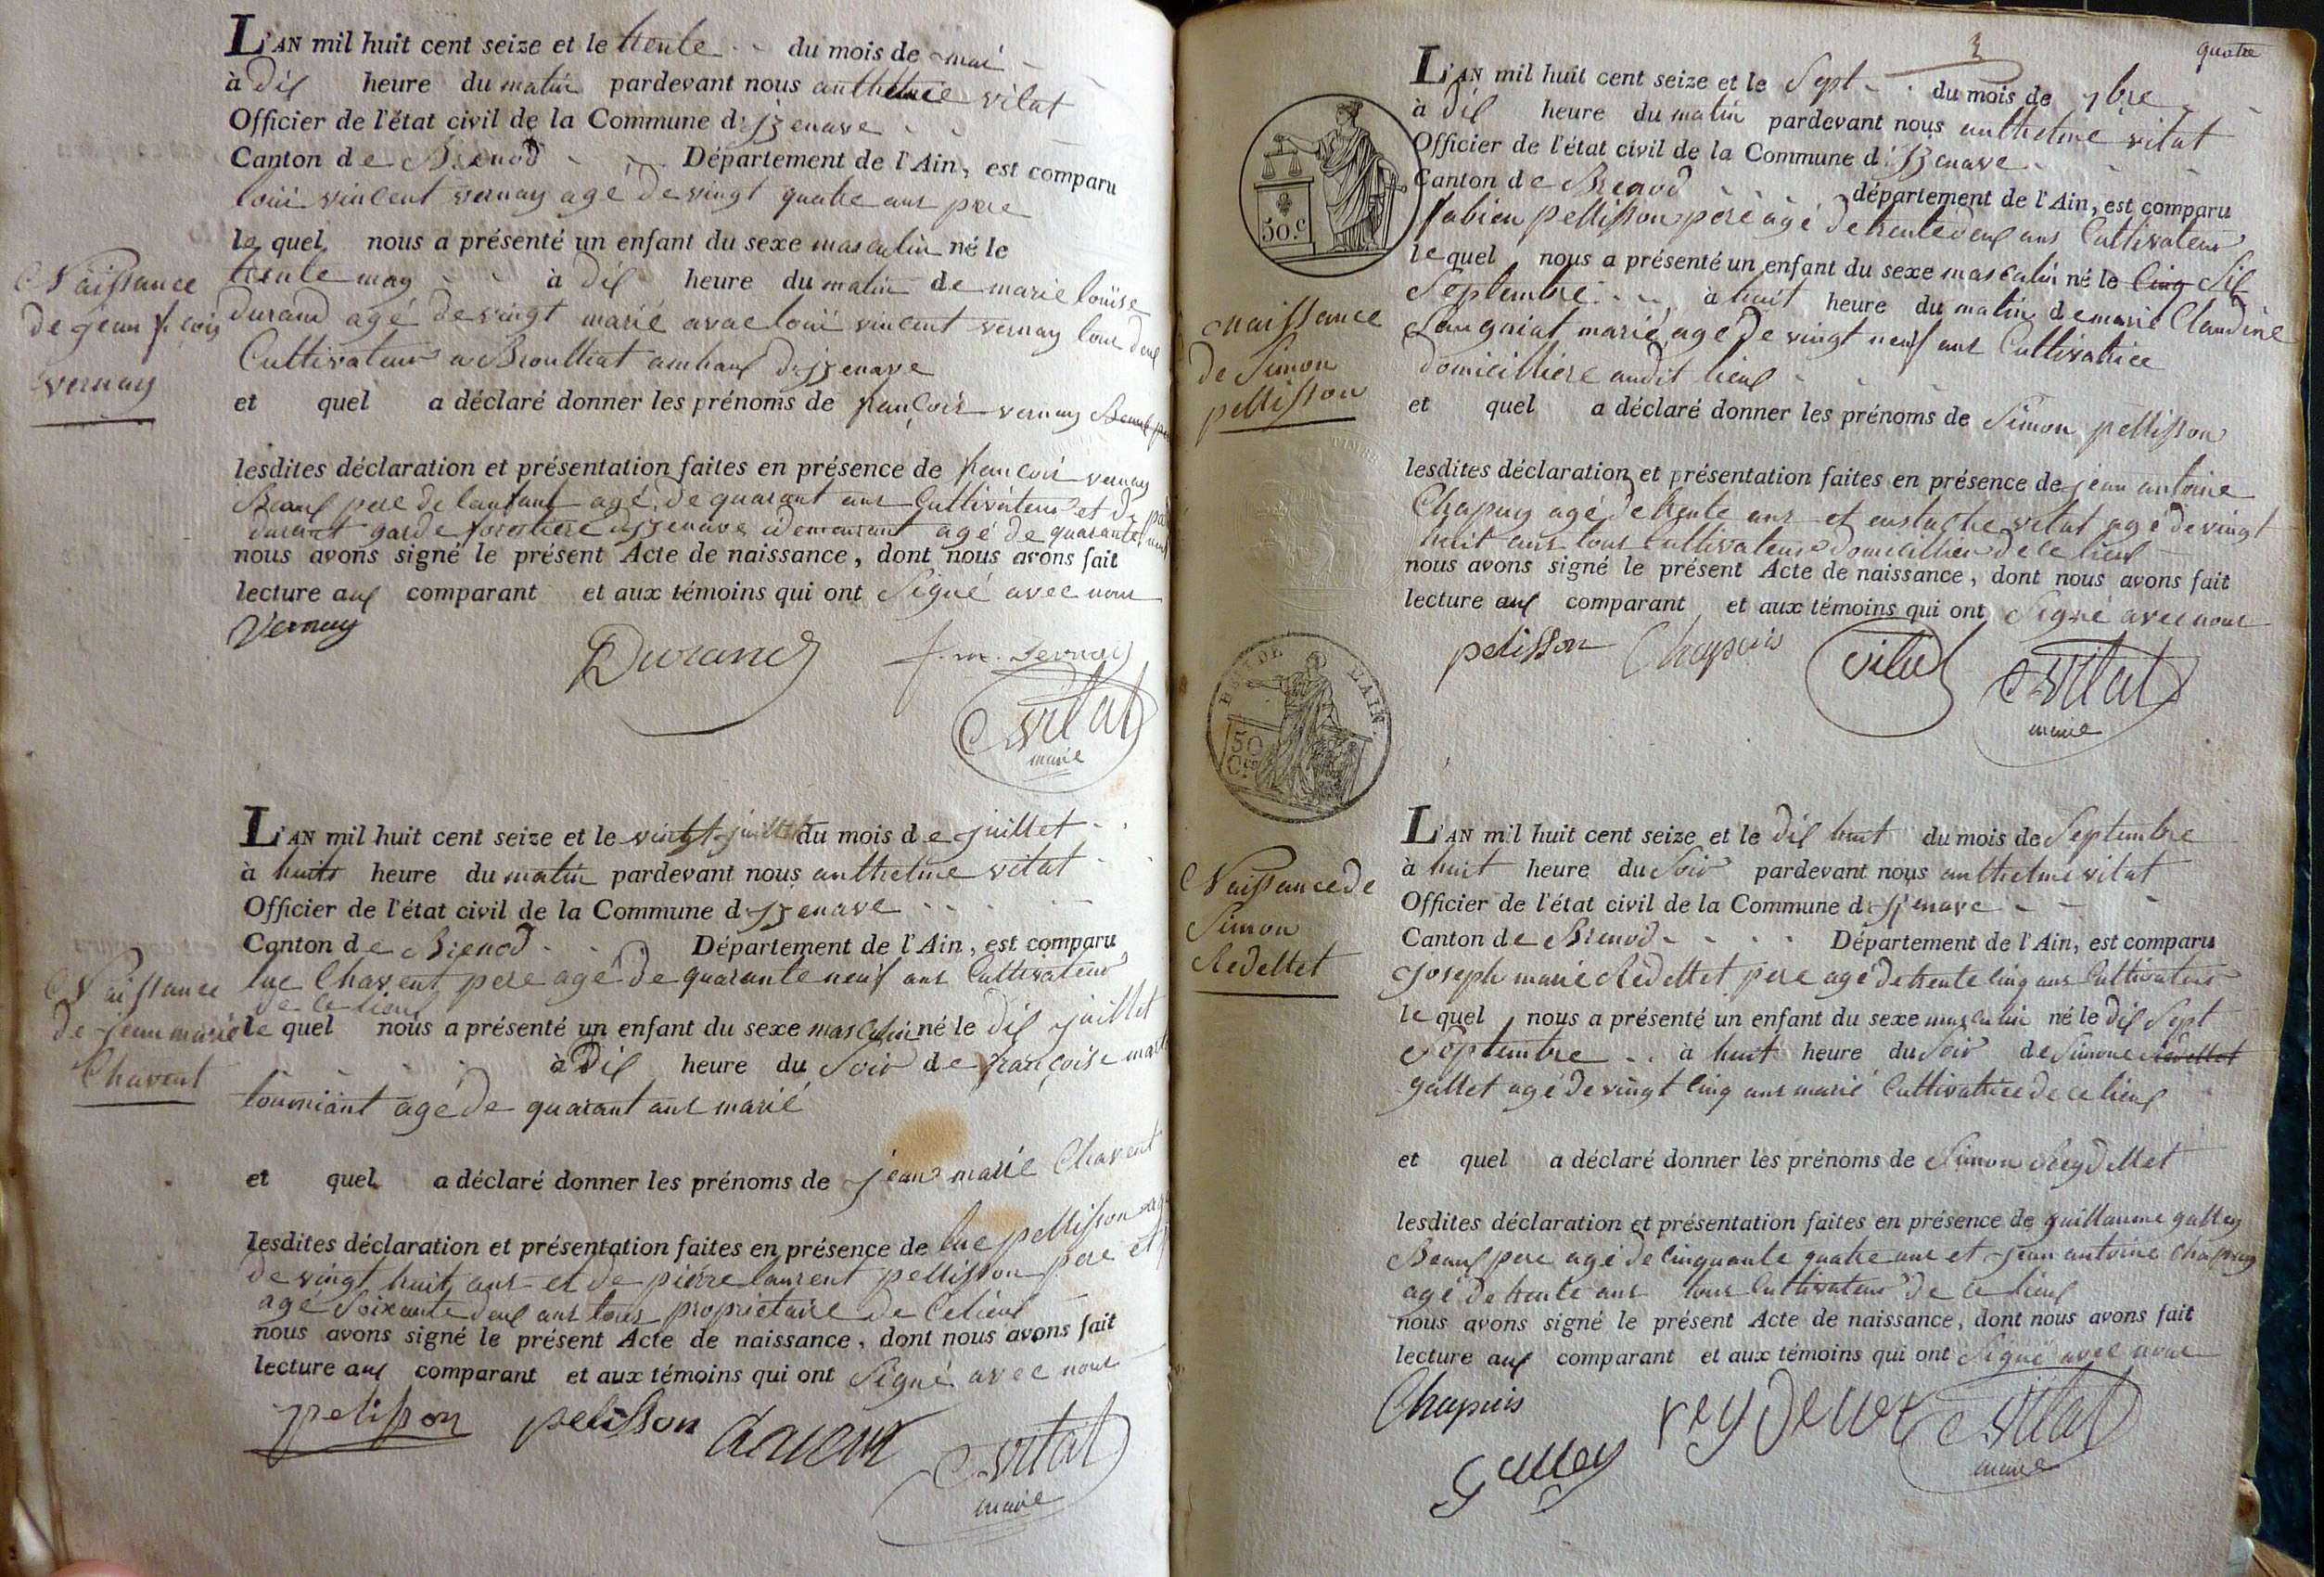 L'AN mil huit cent seize et le trente du mois de mai
à dix heure du matin pardevant nous anthelme vitat
Officier de l'état civil de la Commune d'izenave
Canton de Brenod Département de l'Ain, est comparu
loui vincent vernay agé de vingt quatre ans pere
le quel nous a présenté un enfant du sexe masculin né le
trente may à dix heure du matin de marie louise
durand agé de vingt marié avac loui vincent vernay tour deux
Cultivateur a d'izenave
et quel a déclaré donner les prénoms de françois vernay
lesdites déclaration et présentation faites en présence de françois vernay
Beaux pere de lanfant agé de quarant ans Cultivateur et de
durant garde forestiere d'izenave idemeurant agé de quarante
nous avons signé le présent Acte de naissance, dont nous avons fait
lecture aux comparant et aux témoins qui ont Signé avec nous
Vernay
Durand f. m. Vernay
Vitat
maire
Naissance
de jean f. cois
vernay
L'AN mil huit cent seize et le vingt juillet du mois de juillet
à huits heure du matin pardevant nous anthelme vitat
Officier de l'état civil de la Commune d'izenave
Canton de Brenod Département de l'Ain, est comparu
luc Chavent pere agé de quarante neuf ans Cultivateur
de ce lieux
le quel nous a présenté un enfant du sexe masculin né le dix juillet
à Dix heure du Soir de françoise
tourniant agé de quarant ans marié
et quel a déclaré donner les prénoms de jean marie Chavent
lesdites déclaration et présentation faites en présence de luc pellisson
de vingt huit ans et de pierre laurent pellisson pere et
agé Soixante deux ans tous propriétaire de Celieux
nous avons signé le présent Acte de naissance, dont nous avons fait
lecture aux comparant et aux témoins qui ont Signé avec nous
pelisson pelisson Chavent Vitat
maire
Naissance
de jean marie
Chavent
3
quatre
L'AN mil huit cent seize et le Sept du mois de 7bre
à Dix heure du matin pardevant nous anthelme vitat
Officier de l'état civil de la Commune d'izenave
Canton de Brenod département de l'Ain, est comparu
fabien pellisson pere agé de trente deux ans Cultivateur
le quel nous a présenté un enfant du sexe masculin né le cinq Six
Septembre à huit heure du matin de marie Claudine
Laugniat marié agé de vingt neuf ans Cultivatrice
domicilliere audit lieux
et quel a déclaré donner les prénoms de Simon pellisson
lesdites déclaration et présentation faites en présence de jean antoine
Chapuy agé de trente ans et eustache vitat agé de vingt
huit ans tous Cultivateur domicillier de ce lieux
nous avons signé le présent Acte de naissance, dont nous avons fait
lecture aux comparant et aux témoins qui ont Signé avec nous
pelisson Chapuis Vitat Vitat
maire
50.c
naissance
de Simon
pellisson
TIMBRE
REG. DE L'AIN.
50
C.es
L'AN mil huit cent seize et le dix huit du mois de Septembre
à huit heure du Soir pardevant nous anthelme vitat
Officier de l'état civil de la Commune d'izenave
Canton de Brenod Département de l'Ain, est comparu
Joseph marie Redellet pere agé de trente cinq ans Cultivateur
le quel nous a présenté un enfant du sexe masculin né le dix Sept
Septembre à huit heure du Soir de Simone Redellet
gallet agé de vingt cinq ans marié Cultivatrice de ce lieux
et quel a déclaré donner les prénoms de Simon Reydellet
lesdites déclaration et présentation faites en présence de guillaume galley
Beaux pere agé de cinquante quatre ans et jean antoine Chapuy
agé de trente ans tous Cultivateur de ce lieux
nous avons signé le présent Acte de naissance, dont nous avons fait
lecture aux comparant et aux témoins qui ont Signé avec nous
Chapuis reydellet Vitat
Galley maire
Naissance de
Simon
Redellet